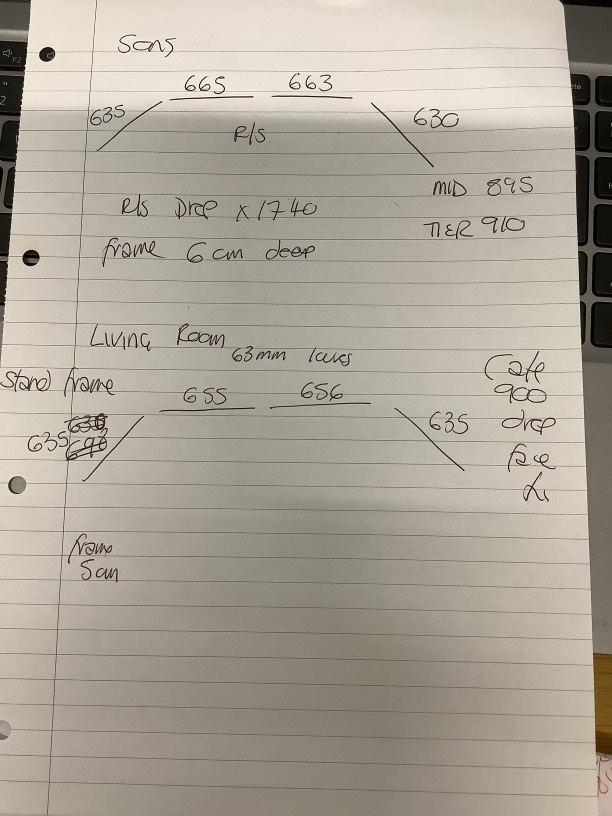 Sons
665 663
635 630
R/S
MID 895
R/S Drop x 1740
TIER 910
frame 6 cm deep
Living Room
63mm louvres
Stand frame
Cafe
655 656
900
635
635
drop
face
frame
5cm